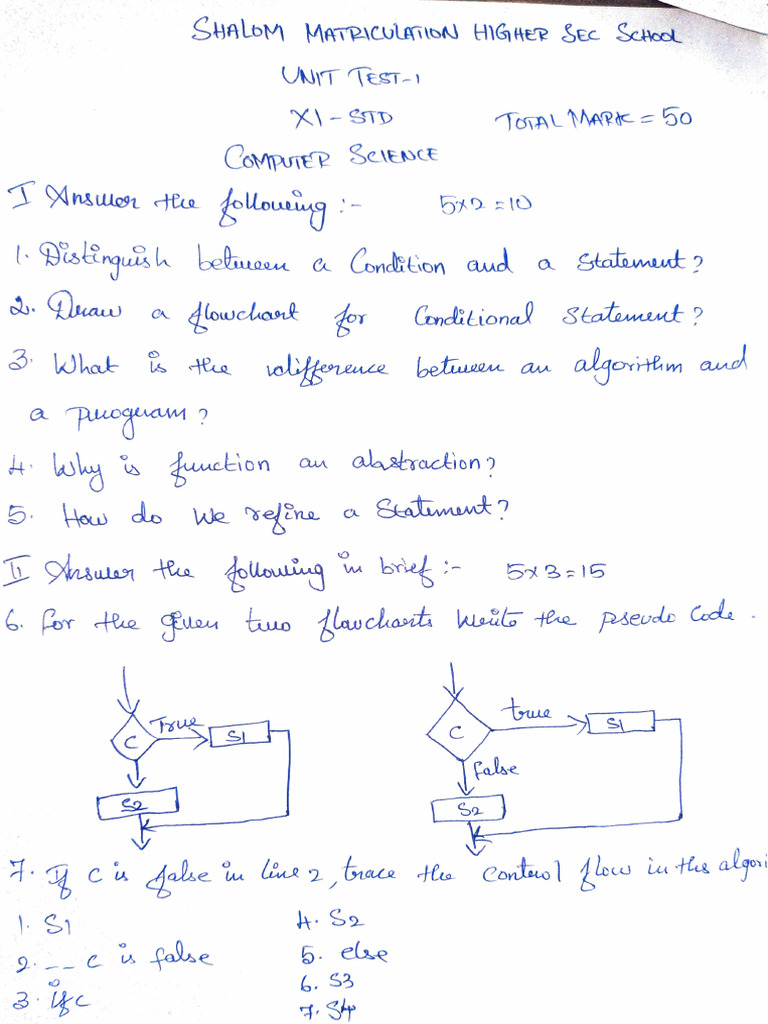 SHALOM MATRICULATION HIGHER SEC SCHOOL
UNIT TEST-1
XI-STD TOTAL MARK = 50
COMPUTER SCIENCE
I Answer the following :- 5×2=10
1. Distinguish between a Condition and a Statement?
2. Draw a flowchart for Conditional Statement?
3. What is the difference between an algorithm and
a program?
4. Why is function an abstraction?
5. How do we refine a Statement?
II Answer the following in brief :- 5×3=15
6. For the given two flowcharts write the pseudo Code.
C True S1
S2
C true S1
false
S2
7. If C is false in line 2, trace the control flow in the algori
1. S1
2. -- C is false
3. if C
4. S2
5. else
6. S3
7. S4